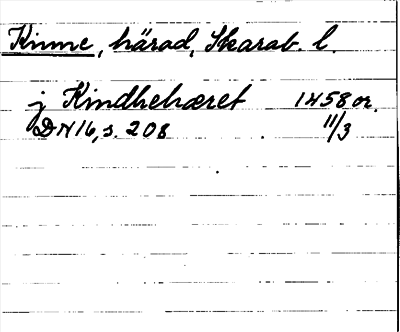 Kinne, härad, Skarab. l.
j Kindhehæret 1458 or.
DN 16, s. 208 11/3